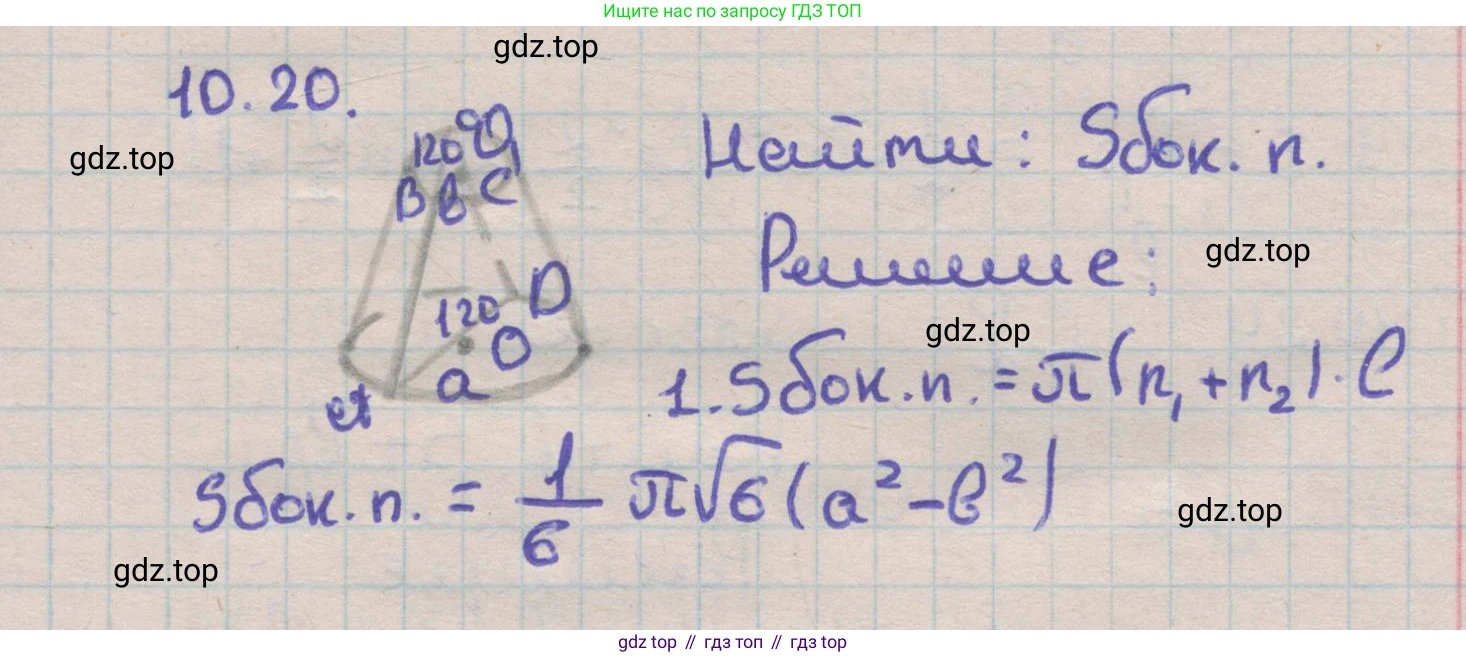 Ищите нас по запросу ГДЗ ТОП
gdz.top
10.20.
gdz.top
120 O₁
B b C
Найти: Sбок. п.
Решение:
gdz.top
120 D
O
a
gdz.top
1. Sбок.п. = π(r₁ + r₂) · l
Sбок.п. = 1/6 π√6(a² - b²)
gdz.top
gdz.top
gdz top // гдз топ // гдз top